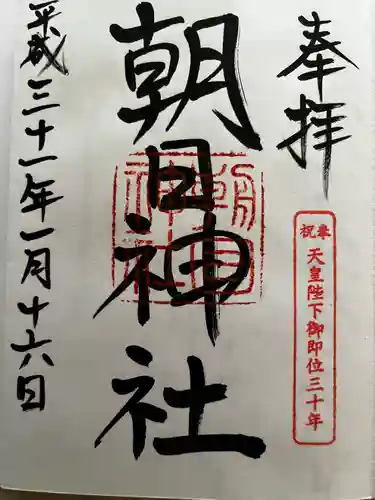 奉拝
奉祝
天皇陛下御即位三十年
朝日神社
朝日神社
平成三十一年一月十六日